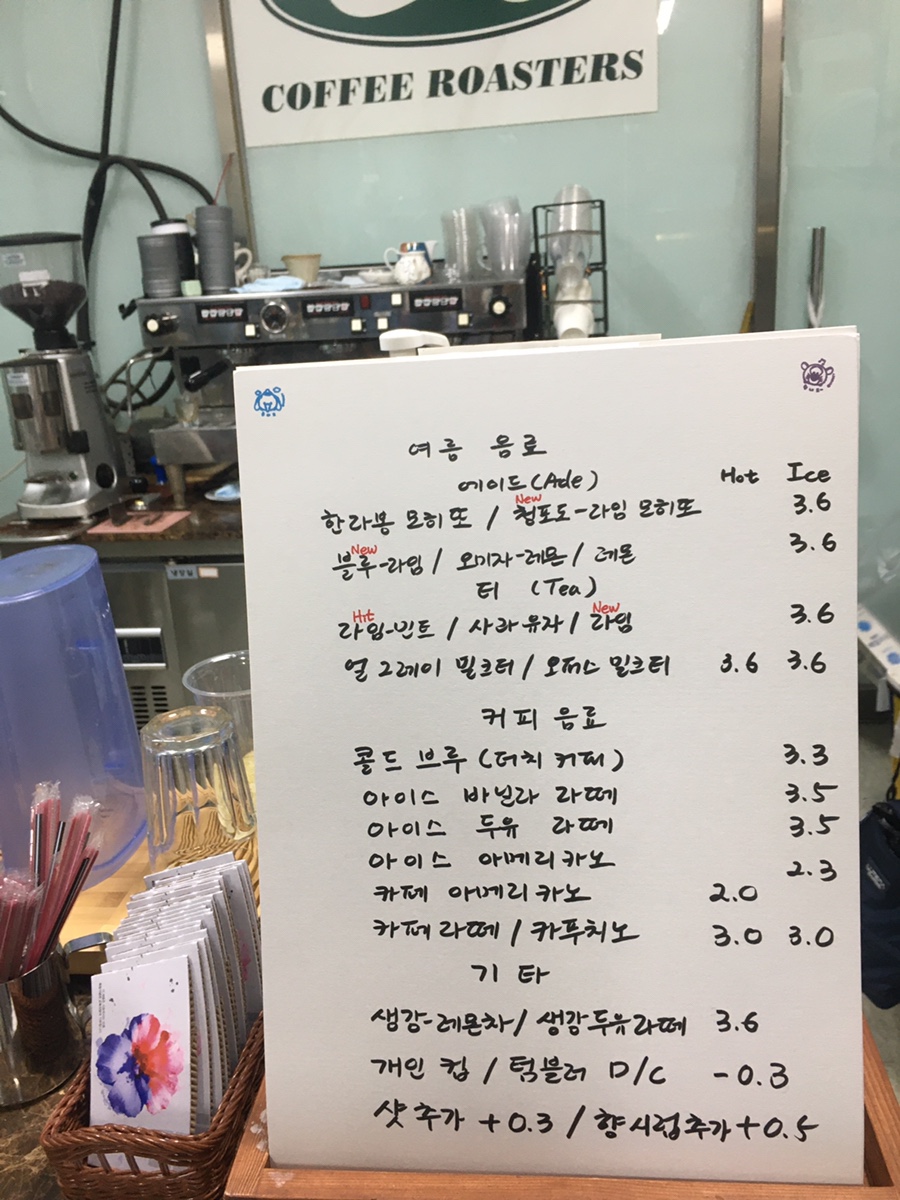 COFFEE ROASTERS
여름 음료
에이드(Ade) Hot Ice
한라봉 모히또 / New 청포도-라임 모히또 3.6
New 블루-라임 / 오미자-레몬 / 레몬 3.6
티 (Tea)
Hit 라임-민트 / 사과유자 / New 라임 3.6
얼그레이 밀크티 / 오퍼스 밀크티 3.6 3.6
커피 음료
콜드 브루 (더치 커피) 3.3
아이스 바닐라 라떼 3.5
아이스 두유 라떼 3.5
아이스 아메리카노 2.3
카페 아메리카노 2.0
카페라떼 / 카푸치노 3.0 3.0
기타
생강-레몬차 / 생강두유라떼 3.6
개인 컵 / 텀블러 D/C -0.3
샷추가 +0.3 / 향시럽추가 +0.5
냉장실